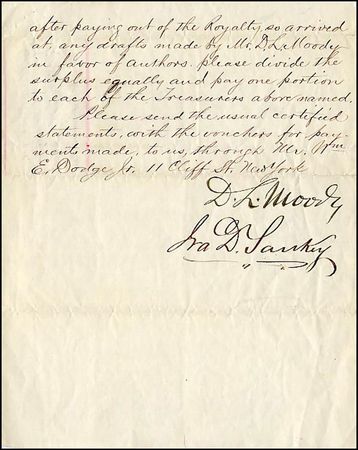 after paying out of the Royalty, so arrived
at, any drafts made by Mr. D. L. Moody
in favor of authors. please divide the
surplus equally and pay one portion
to each of the Treasurers above named.
Please send the usual certified
statements, with the vouchers for pay-
ments made, to us, through Mr. Wm
E. Dodge Jr. 11 Cliff St. New York
D. L. Moody
Ira D. Sankey